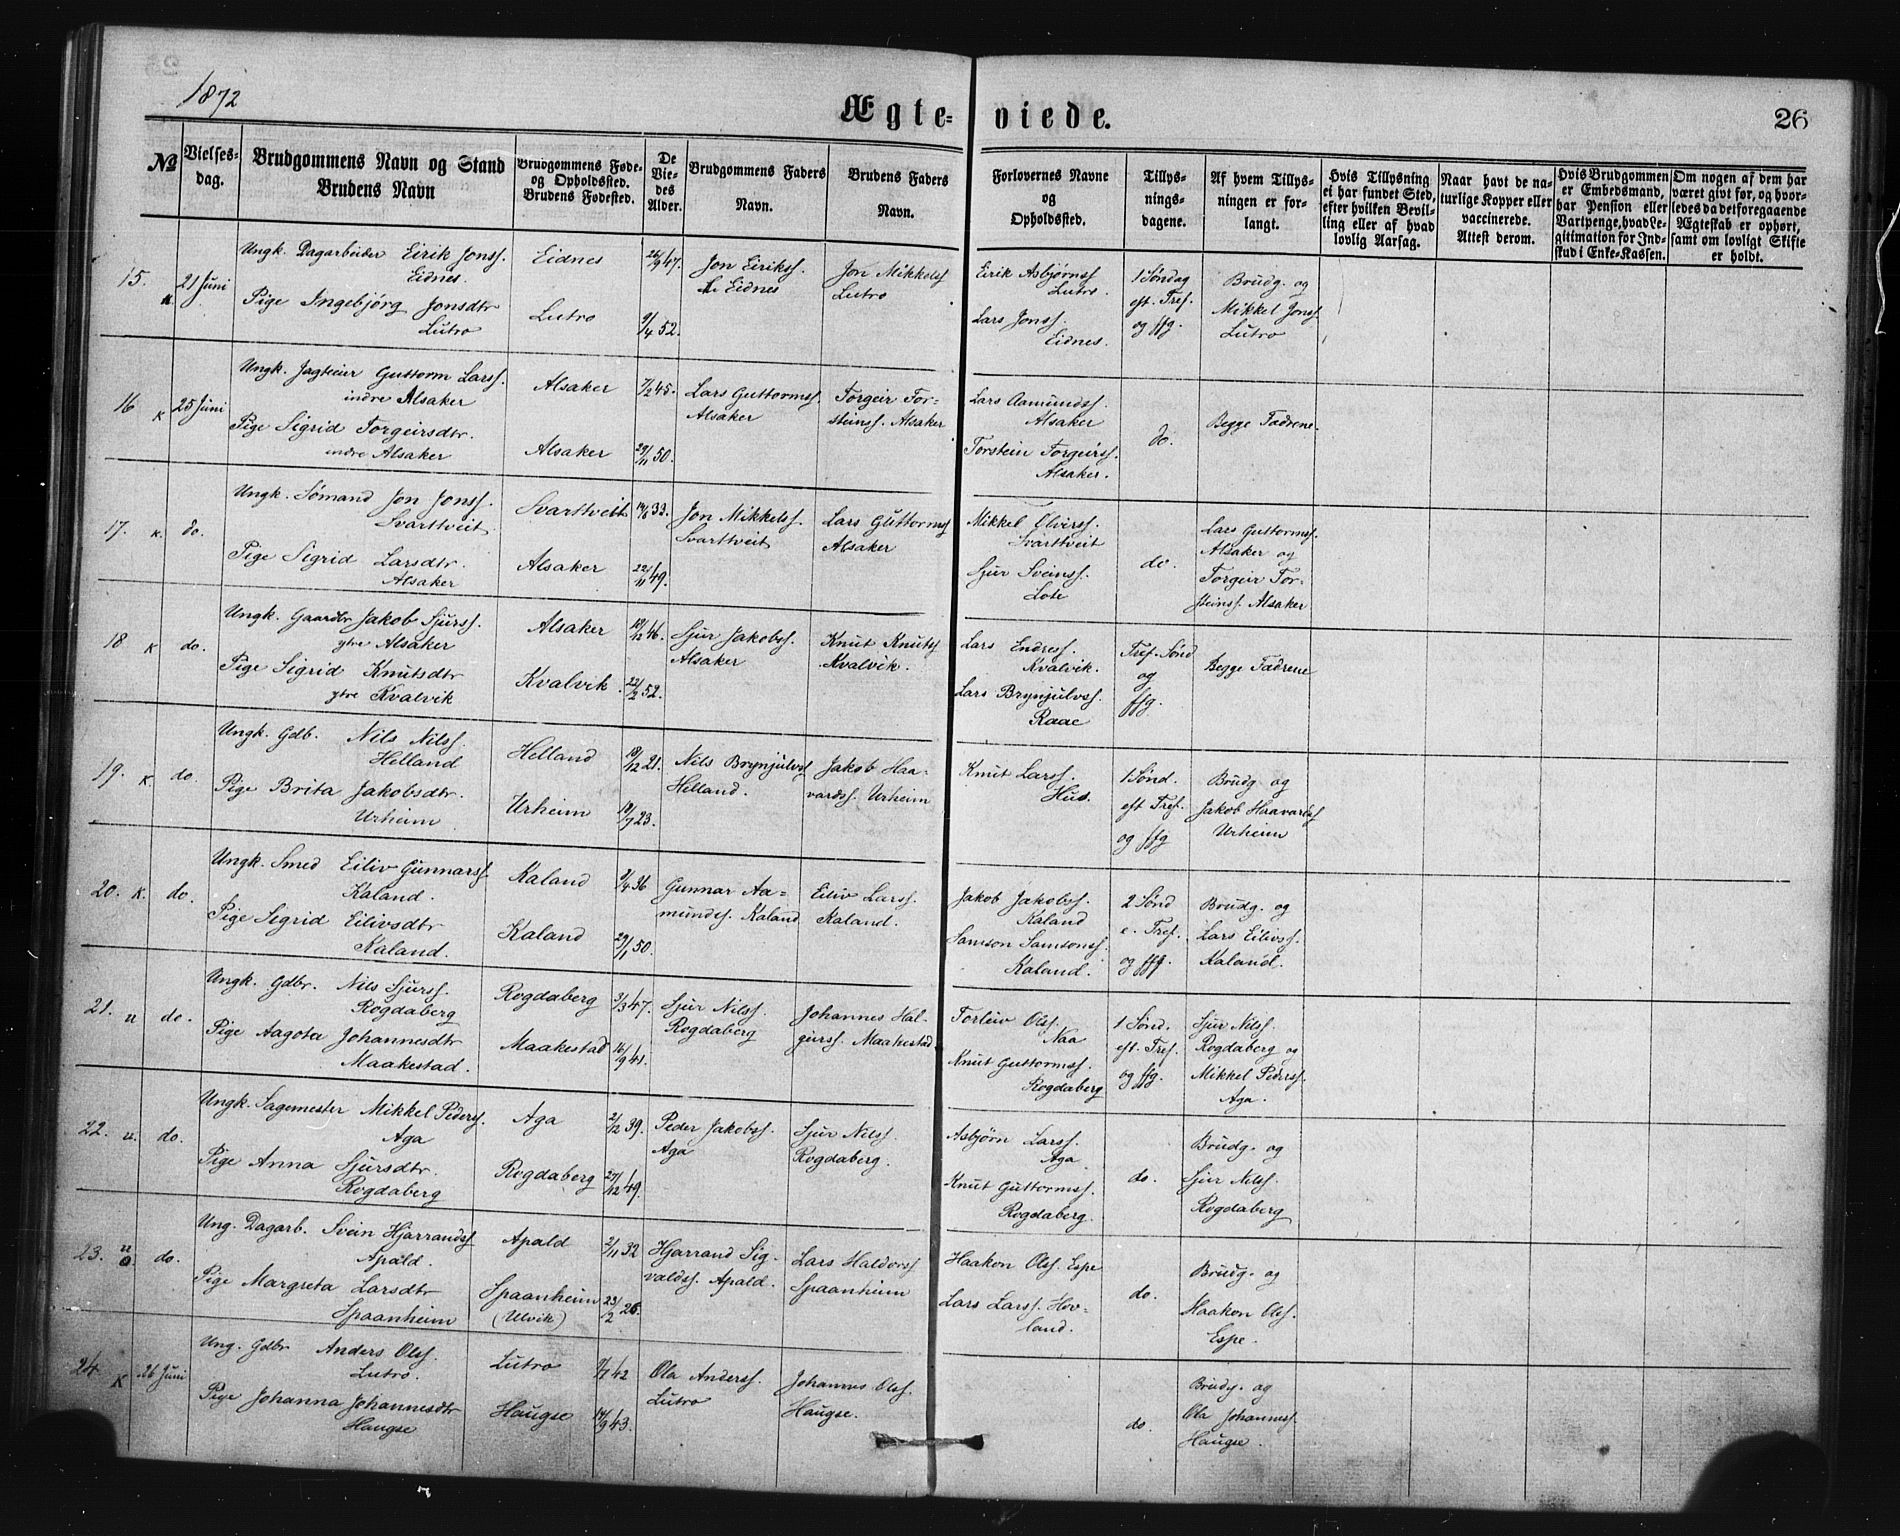 1872
Ægteviede.
26
No
Vielsesdag.
Brudgommens Navn og Stand
Brudens Navn
Brudgommens Føde-
og Opholdssted.
Brudens Fødested.
De
Vie-
des
Alder.
Brudgommens Faders
Navn.
Brudens Faders
Navn.
Forlovernes Navne
og
Opholdssted.
Tillys-
nings-
dagene.
Af hvem Tillys-
ningen er for-
langt.
Hvis Tillysning
ei har fundet Sted,
efter hvilken Bevil-
ling eller af hvad
lovlig Aarsag.
Naar havt de na-
turlige Kopper eller
vaccinerede.
Attest derom.
Hvis Brudgommen
er Embedsmand,
har Pension eller
Vartpenge, hvad Le-
gitimation for Ind-
skud i Enke-Kassen.
Om nogen af dem har
været givt før, og hvor-
ledes da det foregaaende
Ægteskab er ophørt,
samt om lovligt Skifte
er holdt.
15. u. 21 Juni
Ungk. Dagarbeider Eirik Jonss.
Eidnes.
Pige Ingebjørg Jonsdtr
Lutro
Eidnes
Lutro
26/9 47.
9/4 52.
Jon Eirikss.
Eidnes
Jon Mikkelss
Lutro
Eirik Asbjørnss
Lutro.
Lars Jonss.
Eidnes.
1 Søndag
eft. Tref.
og ffg.
Brudg. og
Mikkel Jonss
Lutro
16 K 25 Juni
Ungk. Jagteier Guttorm Larss.
indre Alsaker
Pige Sigrid Torgeirsdtr.
indre Alsaker
Alsaker
Alsaker
7/2 45.
29/11 50.
Lars Guttormss
Alsaker
Torgeir Tor-
steinss. Alsaker
Lars Aamundss.
Alsaker
Torstein Torgeirss.
Alsaker.
do.
Begge Fædrene.
17. K. do.
Ungk. Sømand Jon Jonss.
Svarttveit
Pige Sigrid Larsdtr.
Alsaker
Svarttveit
Alsaker
14/6 33.
22/11 49.
Jon Mikkelss.
Svarttveit
Lars Guttormss
Alsaker
Mikkel Olvirss.
Svarttveit
Sjur Sveinss.
Lote
do.
Lars Guttormss.
Alsaker og
Torgeir Tor-
steinss. Alsaker
18 K do.
Ungk. Gaardbr Jakob Sjurss.
ytre Alsaker
Pige Sigrid Knutsdtr
ytre Kvalvik
Alsaker
Kvalvik
10/12 46.
22/2 52.
Sjur Jakobss.
Alsaker
Knut Knutss
Kvalvik.
Lars Endress.
Kvalvik.
Lars Brynjulvss.
Raae
Tref. Sønd
og
ffg.
Begge Fædrene
19. K do.
Ungk. Gdb. Nils Nilss.
Helland
Pige Brita Jakobsdtr.
Urheim
Helland
Urheim
18/12 21.
18/9 23.
Nils Brynjulvss
Helland.
Jakob Haa-
vardss. Urheim
Knut Larss.
Hus.
1 Sønd.
eft. Tref.
og ffg
Brudg. og
Jakob Haavardss
Urheim
20. K. do.
Ungk. Smed Eiliv Gunnarss.
Kaland.
Pige Sigrid Eilivsdtr
Kaland.
Kaland
Kaland
9/4 36
29/1 50.
Gunnar Aa-
mundss. Kaland
Eiliv Larss.
Kaland.
Jakob Jakobss.
Kaland
Samson Samsonss.
Kaland.
2 Sønd
e. Tref.
og ffg.
Brudg. og
Lars Eilivss.
Kaland.
21. u do.
Ungk. Gdbr. Nils Sjurss.
Rogdaberg
Pige Aagota Johannesdtr
Maakestad.
Rogdaberg
Maakestad
3/3 47.
16/9 41.
Sjur Nilss.
Rogdaberg
Johannes Hal-
gurss. Maakestad
Torleiv Olss.
Naa
Knut Guttormss.
Rogdaberg
1 Sønd.
eft. Tref.
og ffg.
Sjur Nilss.
Rogdaberg og
Mikkel Pederss.
Aga.
22. u. do.
Ungk. Sagemester Mikkel Pederss.
Aga
Pige Anna Sjursdtr.
Rogdaberg
Aga
Rogdaberg
2/12 39.
27/12 49.
Peder Jakobss.
Aga
Sjur Nilss.
Rogdaberg.
Asbjørn Larss.
Aga
Knut Guttormss.
Rogdaberg.
do.
Brudg. og
Sjur Nilss.
Rogdaberg
23. u o. do.
Ung. Dagarb. Svein Hjarrandss
Apald.
Pige Margreta Larsdtr
Spaanheim
Apald
Spaanheim
(Ulvik)
2/11 32
23/2 26.
Hjarrand Sig-
valdss. Apald.
Lars Haldorss
Spaanheim
Haakon Olss. Espe
Lars Larss. Hov-
land.
do.
Brudg. og
Haakon Olss.
Espe.
24. K 26 Juni
Ung. Gdbr Anders Olss.
Lutro.
Pige Johanna Johannesdtr
Haugse
Lutro
Haugse
9/7 42
14/9 43.
Ola Anderss.
Lutro
Johannes Olss.
Haugse.
do
Brudg. og
Ola Johanness.
Haugse.